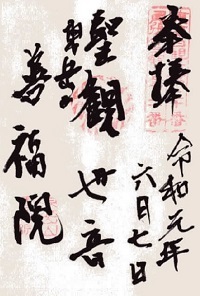 奉拝
令和元年
六月七日
聖観世音
善福院